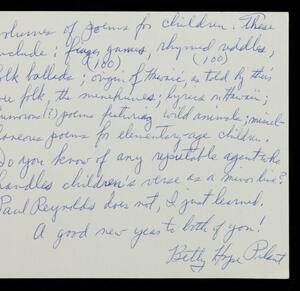 volumes of poems for children. These
include: finger games, rhymed riddles,
(100) (100)
folk ballads; origin of Hawaii, as told by their
wee folk, the menehunes; lyrics on Hawaii;
humorous(?) poems featuring wild animals; miscel-
laneous poems for elementary-age children.
Do you know of any reputable agent who
handles children's verse as a minor line?
Paul Reynolds does not, I just learned.
A good new year to both of you!
Betty Hope